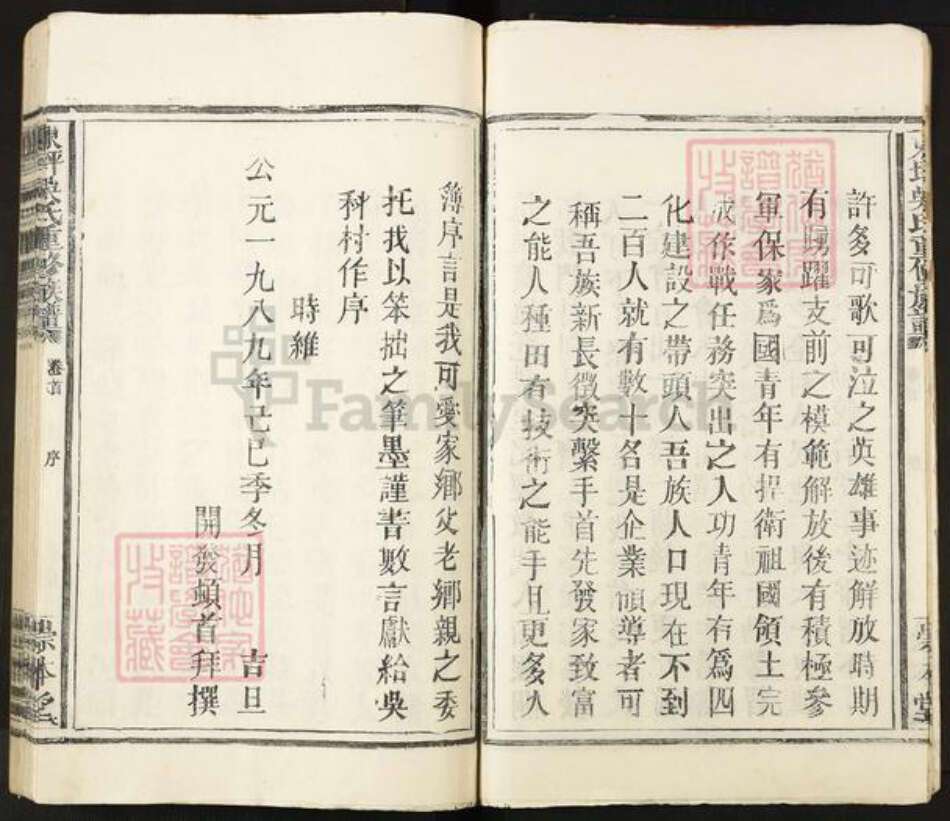 許多可歌可泣之英雄事迹解放時期
有踴躍支前之模範解放後有積極參
軍保家爲國青年有捍衛祖國領土完
成作戰任務突出之人功青年有爲四
化建設之帶頭人吾族人口現在不到
二百人就有數十名是企業領導者可
稱吾族新長徵突繫手首先發家致富
之能人種田有技術之能手且更多人
簿序言是我可愛家鄉父老鄉親之委
托我以笨拙之筆墨謹書數言獻給吳
科村作序
時維
公元一九八九年己巳季冬月 吉旦
開發頓首拜撰
吳氏重修族譜 卷首 序
FamilySearch